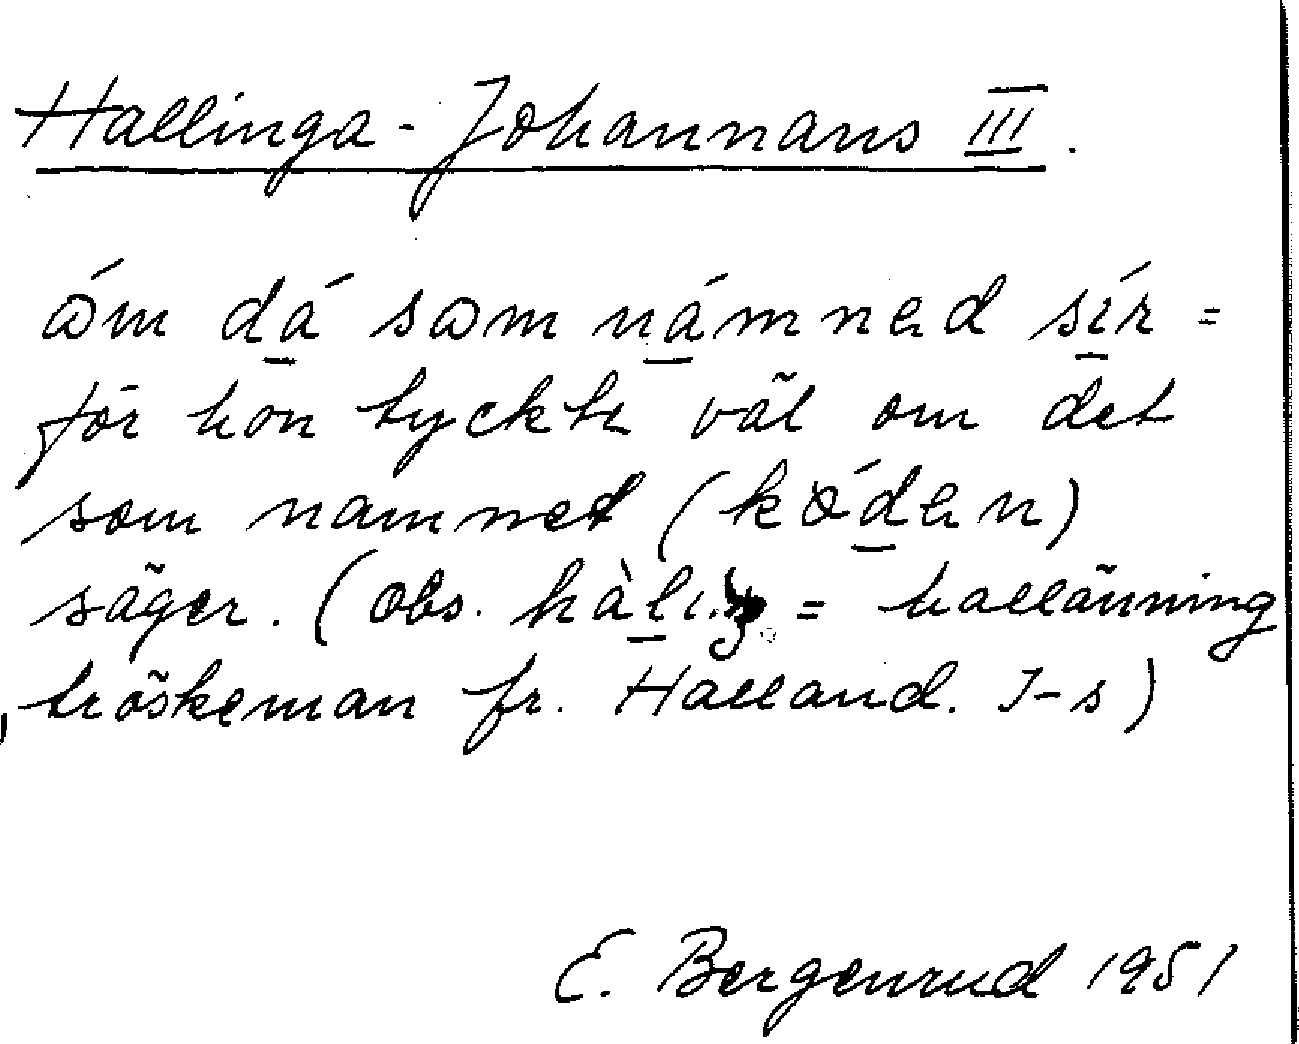 Hallinga-Johannans III.
ɷ́m dá sɷm námnəd sír =
för hon tyckte väl om det
som namnet (kɷ́dən)
säger. (Obs. hàliŋ. = hallänning
, tröskeman fr. Halland. J-s)
E. Bergenrud 1951